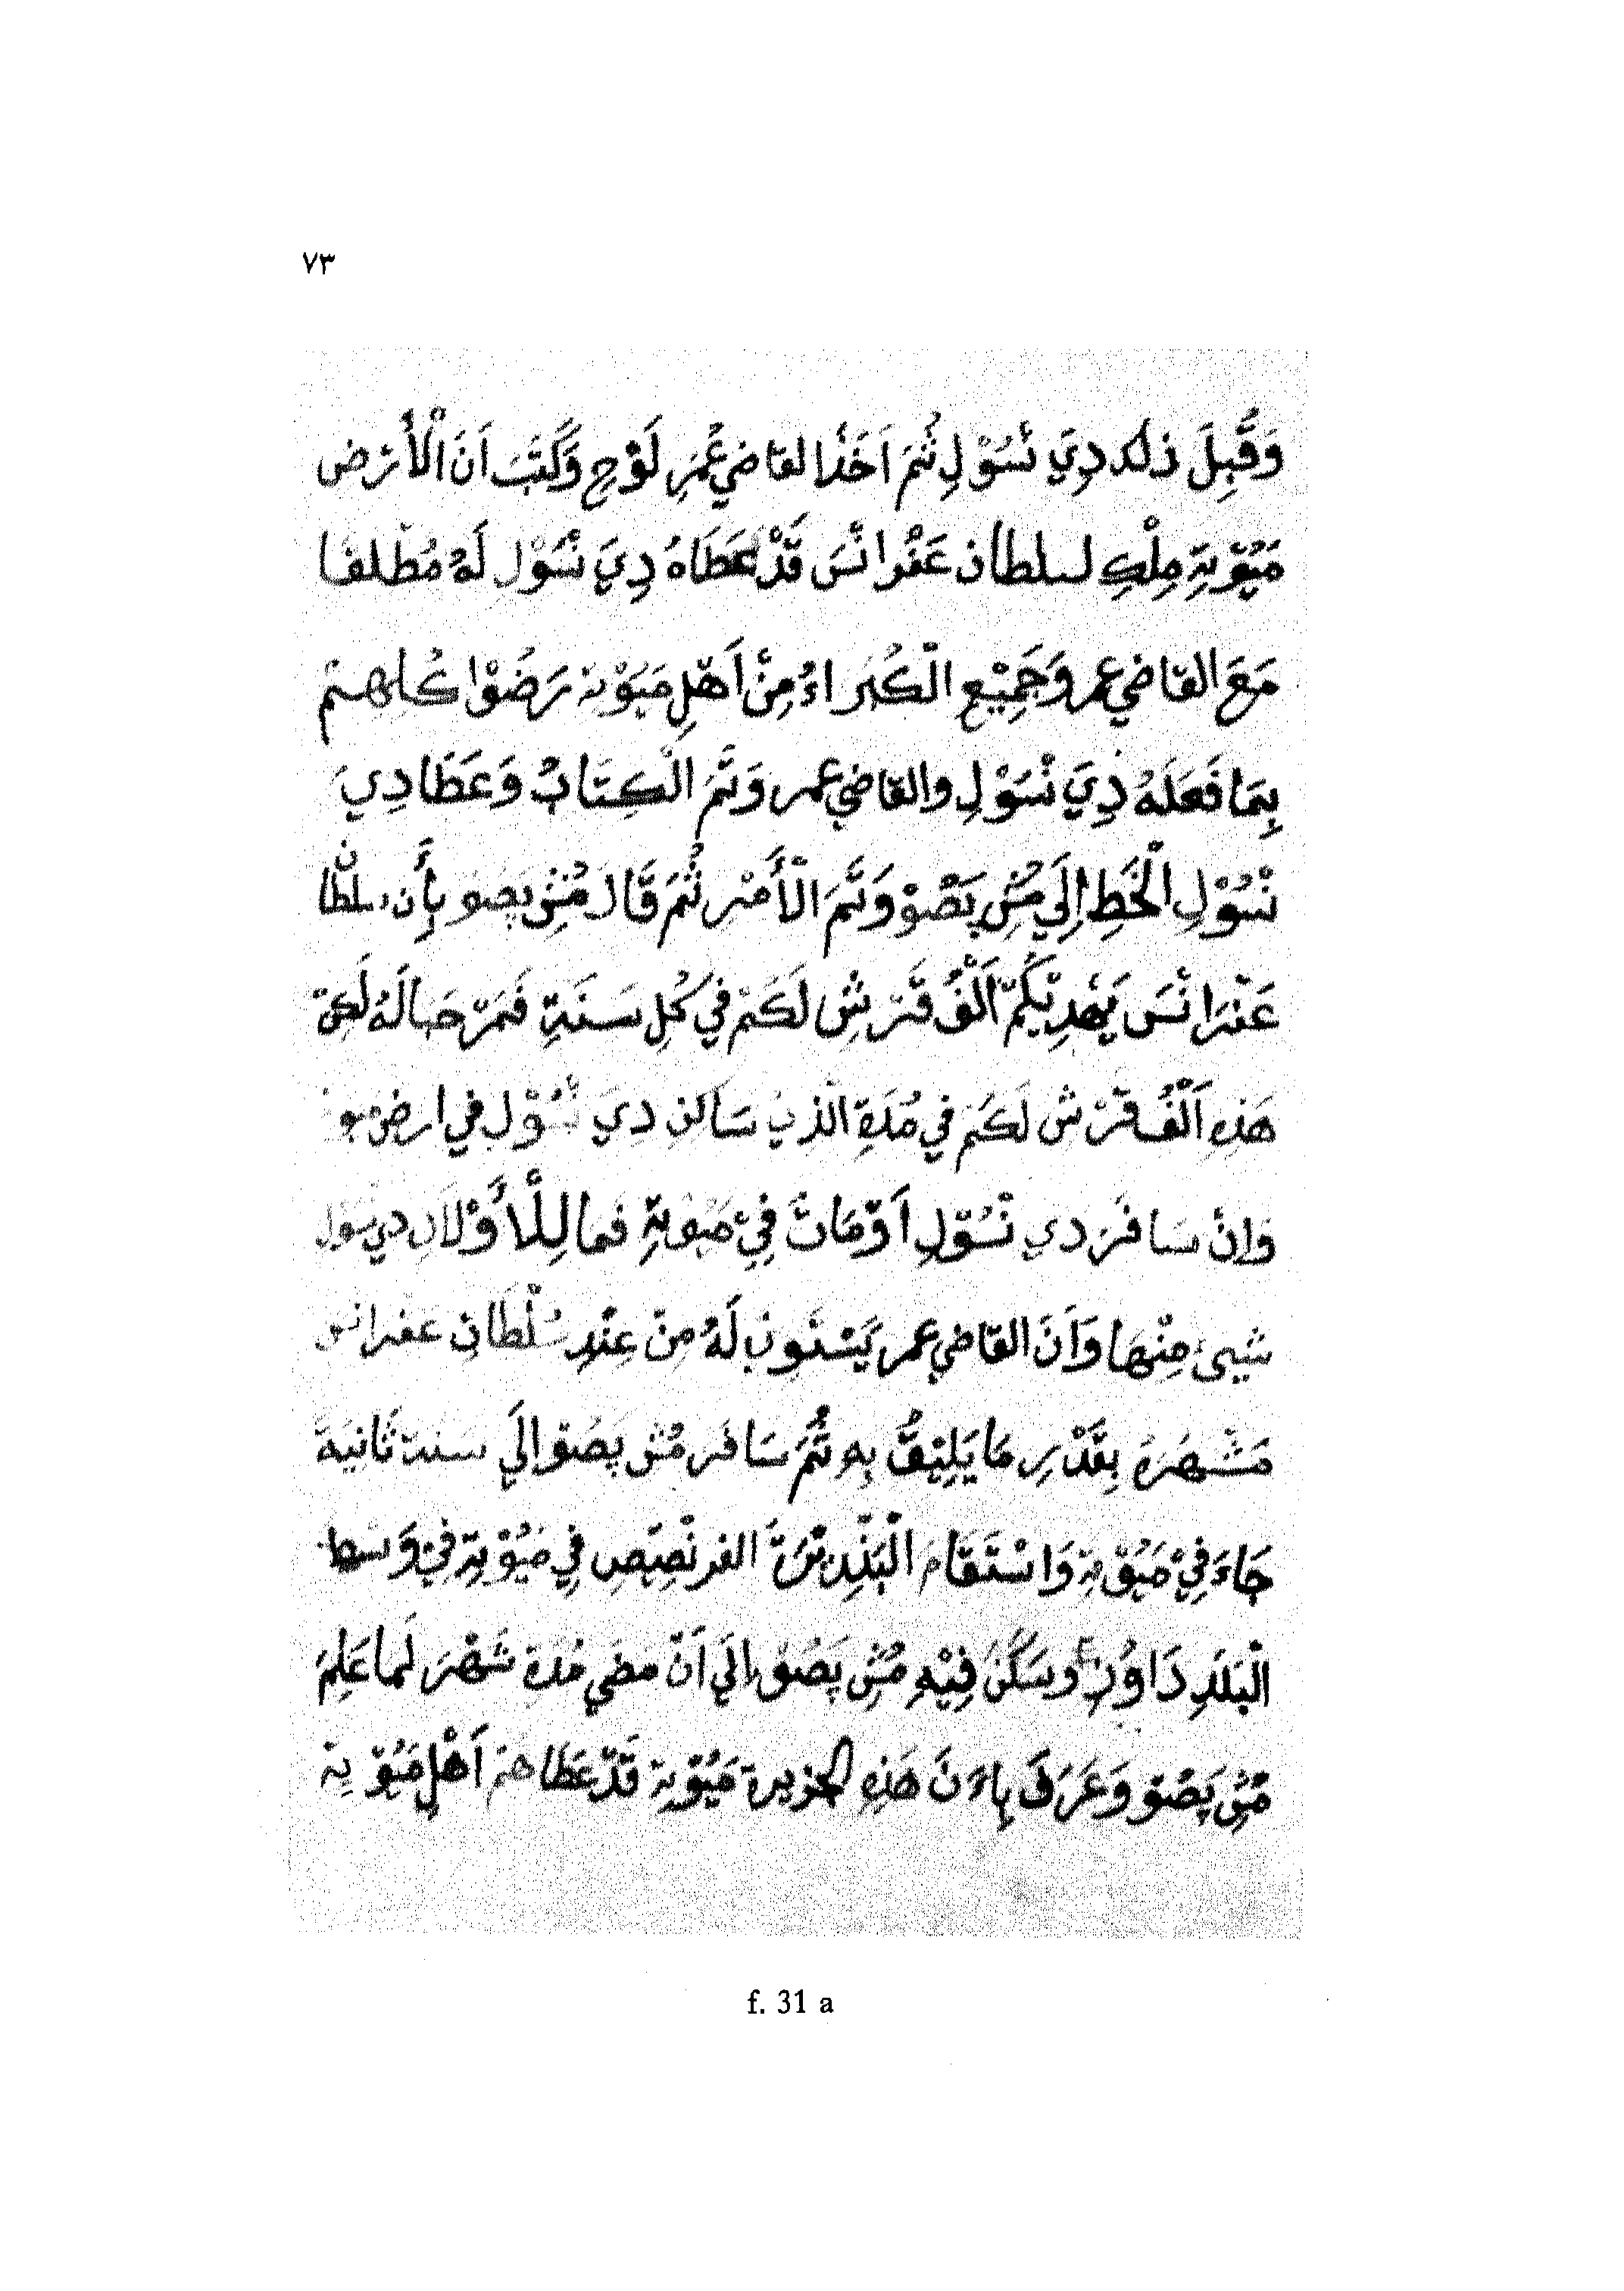 ٧٣
وَقَبِلَ ذلك دِيَ نْسُوْلِ ثُمَ اَخَذَ القاضي عُمَرِ لَوْحِ وَكَتَبَ اَنَ الْأَرْض
مَيُوْتِة مِلْكِ لسلطان عَفْرانْسَ قَدْ عَطَاهُ دِيَ نْسُوْل لَهُ مُطْلقا
مَعَ القاضي عمر وَجَمِيْعِ الْكُبَراءُ مِنْ اَهْلِ مَيُوْتة رَضُوْا كلهم
بِمَا فَعَلَهُ دِيَ نْسَوْلِ والقاضي عمر وَتَمَّ الْكِتَابُ وَعَطَا دِيَ
نْسُوْلِ الْخَطِ إِلَي مُشِ پَصُوْ وَتَمَ الْأَمْر ثُمَ قَالَ مُشِ پصو بِأَن سلطان
عَفْرَانْسَ يَهْدِيْكُمْ اَلْفُ قَرْشِ لَكُمْ في كُلِ سَنَةِ فَمَرْحَبا لَهُ لَكِنْ
هَذِهِ اَلْفُ قَرْش لَكُمْ في مُدَةِ الَّذِي سَاكن دِيَ نْسُوْل في ارض
وَإِنْ سَافَرَ دي نْسُوْلِ اَوْ مَاتَ فِيْ مَيُوْتِةِ فما لِلْأَوْلَادِ دي نسول
شيئ مِنْهَا وَاَنَ القاضي عمر يَسْتَوِي لَهُ مِنْ عِنْدِ سُلْطَانِ عفرانس
مَشْهَرَهُ بِقَدْرِ مَا يَلِيْقُ بِهِ ثُمَّ سَافَر مُش پَصُو إِلَي سَنة ثَانيَة
جَاءَ فِيْ مَيُوْتِة وَاسْتَقَامَ الْبَنْدِيْرَة الفرنْصِيْصِ في مَيُوْتِة فِيْ وَسط
الْبَلَدِ دَاوُنِ وسَكَنَ فِيْهِ مُشِ پَصُوْ إلَي اَنْ مضي مُدَة شَهْرَ لَما عَلِمَ
مُشِ پَصُو وَعَرَفَ بِاءَنَ هَذِهِ الجزيرة مَيُوْتِة قَدْ عَطَاهمْ اَهْلِ مَيُوْتِة
f. 31 a